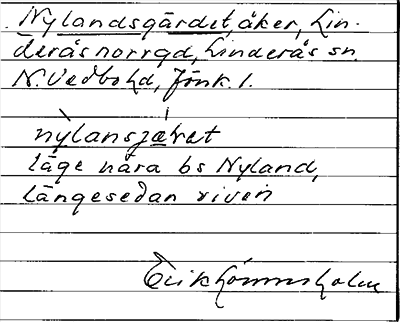 Nylandsgärdet, åker, Lin-
deråsnorrgd, Linderås sn.
N. Vedbo hd, Jönk. l.
nỳlansjæ̀ret
läge nära bs Nyland,
längesedan riven
Erik Lönnerholm